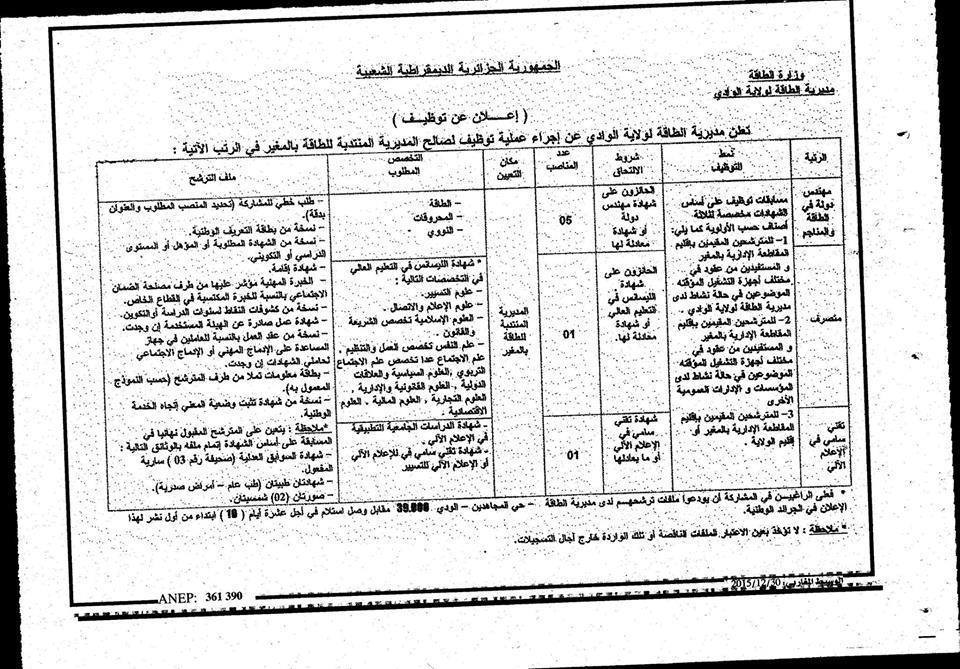 الجمهورية الجزائرية الديمقراطية الشعبية
وزارة الطاقة
مديرية الطاقة لولاية الوادي
( إعــلان عن توظيـف )
تعلن مديرية الطاقة لولاية الوادي عن إجراء عملية توظيف لصالح المديرية المنتدبة للطاقة بالمغير في الرتب الآتية :
الرتبة
نمط
التوظيف
شروط
الالتحاق
عدد
المناصب
مكان
التعيين
التخصص
المطلوب
ملف الترشح
مهندس
دولة في
الطاقة
والمناجم
مسابقات توظيف على أساس
الشهادات مخصصة لثلاثة
أصناف حسب الأولوية كما يلي:
1- للمترشحين المقيمين بإقليم
المقاطعة الإدارية بالمغير
و المستفيدين من عقود في
مختلف أجهزة التشغيل المؤقتة
الموضوعين في حالة نشاط لدى
مديرية الطاقة لولاية الوادي .
2- للمترشحين المقيمين بإقليم
المقاطعة الإدارية بالمغير
و المستفيدين من عقود في
مختلف أجهزة التشغيل المؤقتة
الموضوعين في حالة نشاط لدى
المؤسسات و الإدارات العمومية
الأخرى
3- للمترشحين المقيمين بإقليم
المقاطعة الإدارية بالمغير أو
إقليم الولاية .
الحائزون على
شهادة مهندس
دولة
أو شهادة
معادلة لها
05
المديرية
المنتدبة
للطاقة
بالمغير
– الطاقة
– المحروقات
– النووي
– طلب خطي للمشاركة (تحديد المنصب المطلوب والعنوان
بدقة).
– نسخة من بطاقة التعريف الوطنية.
– نسخة من الشهادة المطلوبة أو المؤهل أو المستوى
الدراسي أو التكويني.
– شهادة إقامة.
– الخبرة المهنية مؤشر عليها من طرف مصلحة الضمان
الاجتماعي بالنسبة للخبرة المكتسبة في القطاع الخاص.
– نسخة من كشوفات النقاط لسنوات الدراسة أو التكوين.
– شهادة عمل صادرة عن الهيئة المستخدمة إن وجدت.
– نسخة من عقد العمل بالنسبة للعاملين في جهاز
المساعدة على الإدماج المهني أو الإدماج الاجتماعي
لحاملي الشهادات إن وجدت.
– بطاقة معلومات تملأ من طرف المترشح (حسب النموذج
المعمول به).
– نسخة من شهادة تثبت وضعية المعني إتجاه الخدمة
الوطنية.
*ملاحظة : يتعين على المترشح المقبول نهائيا في
المسابقة على أساس الشهادة إتمام ملفه بالوثائق التالية :
– شهادة السوابق العدلية (صحيفة رقم 03 ) سارية
المفعول.
– شهادتان طبيتان (طب عام – أمراض صدرية).
– صورتان (02) شمسيتان.
متصرف
الحائزون على
شهادة
الليسانس في
التعليم العالي
أو شهادة
معادلة لها.
01
* شهادة الليسانس في التعليم العالي
في التخصصات التالية :
– علوم التسيير.
– علوم الإعلام والاتصال.
– العلوم الإسلامية تخصص الشريعة
والقانون .
– علم النفس تخصص العمل والتنظيم ,
علم الاجتماع عدا تخصص علم الاجتماع
التربوي ,العلوم السياسية والعلاقات
الدولية , العلوم القانونية والإدارية ,
العلوم التجارية , العلوم المالية , العلوم
الاقتصادية .
تقني
سامي في
الإعلام
الآلي
شهادة تقني
سامي في
الإعلام الآلي
أو ما يعادلها
01
- شهادة الدراسات الجامعية التطبيقية
في الإعلام الآلي .
- شهادة تقني سامي في الإعلام الآلي
أو الإعلام الآلي للتسيير
* فعلى الراغبيــن في المشاركة أن يودعوا ملفات ترشحهــم لدى مديرية الطاقة – حي المجاهدين – الوادي 39.000 مقابل وصل استلام في أجل عشرة أيام ( 10 ) ابتداء من أول نشر لهذا
الإعلان في الجرائد الوطنية.
* ملاحظة : لا تؤخذ بعين الاعتبار الملفات الناقصة أو تلك الواردة خارج آجال التسجيلات.
الوسيط المغاربي: 2015/12/30
ANEP: 361 390